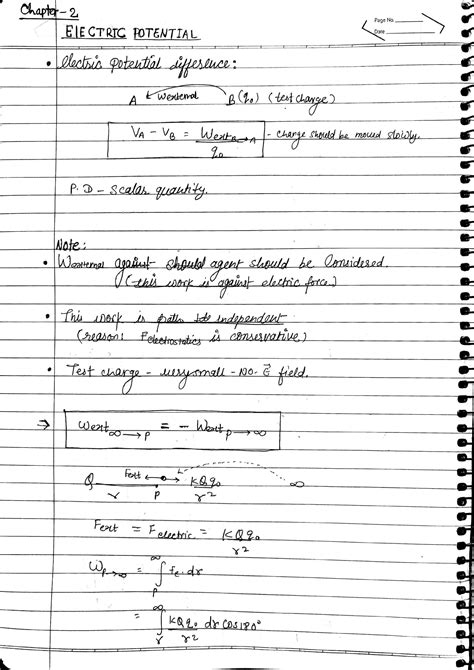 Chapter-2
ELECTRIC POTENTIAL
Page No.
Date
• Electric potential difference:
A ← Wexternal B(q₀) (test charge)
V_A - V_B = Wext_B→A / q₀ - charge should be moved slowly.
P.D - scalar quantity.
Note:
• Wexternal against should agent should be Considered.
(this work is against electric force.)
• This work is path independent
(reason: Felectrostatics is conservative)
• Test charge - very small - NO. E⃗ field.
⇒ Wext ∞→P = - Wext P→∞
Q Fext KQq₀/r² ∞
r P
Fext = Felectric = KQq₀/r²
W P→∞ = ∫_P^∞ fe. dr
= ∫_r^∞ KQq₀/r² dr cos180°